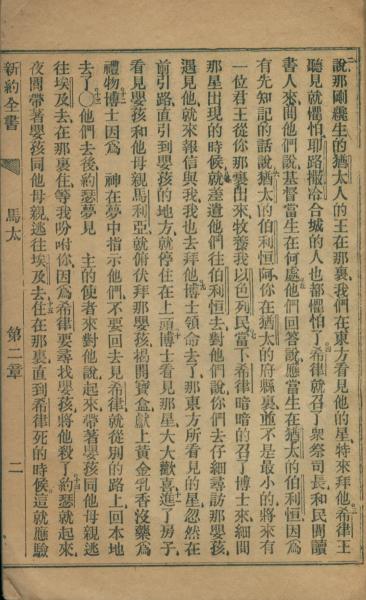 說那剛纔生的猶太人的王在那裏我們在東方看見他的星特來拜他希律王
聽見就懼怕耶路撒冷合城的人也都懼怕了希律就召了眾祭司長和民間讀
書人來問他們說基督當生在何處他們回答說應當生在猶太的伯利恒因為
有先知記的話說猶太的伯利恒阿你在猶太的府縣裏並不是最小的將來有
一位君王從你那裏出來牧養我以色列民當下希律暗暗的召了博士來細問
那星出現的時候就差遣他們往伯利恒去對他們說你們去仔細尋訪那嬰孩
遇見他就來報信與我我也去拜他博士領命去了那東方所看見的星忽然在
前引路直引到嬰孩的地方就停住在上頭博士看見那星大大歡喜進了房子
看見嬰孩和他母親馬利亞就俯伏拜那嬰孩揭開寶盒獻上黃金乳香沒藥為
禮物博士因為 神在夢中指示他們不要回去見希律就從別的路上回本地
去了〇他們去後約瑟夢見 主的使者來對他說起來帶著嬰孩同他母親逃
往埃及去在那裏住等我吩咐你因為希律要尋找嬰孩將他殺了約瑟就起來
夜間帶著嬰孩同他母親逃往埃及去住在那裏直到希律死的時候這就應驗
新約全書 馬太 第二章 二